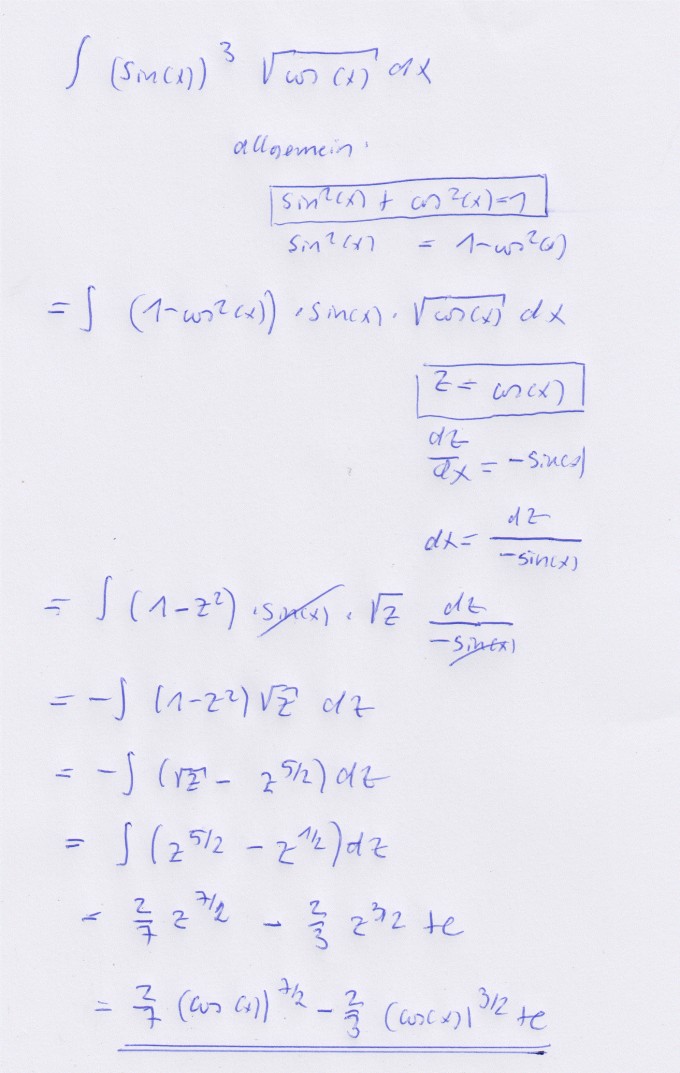 ∫ (sin(x))³ √cos(x) dx
allgemein:
sin²(x) + cos²(x)=1
sin²(x) = 1-cos²(x)
= ∫ (1-cos²(x)) · sin(x) · √cos(x) dx
z = cos(x)
dz/dx = -sin(x)
dx = dz/-sin(x)
= ∫ (1-z²) · sin(x) · √z dz/-sin(x)
= -∫ (1-z²) √z dz
= -∫ (√z - z^5/2) dz
= ∫ (z^5/2 - z^1/2) dz
= 2/7 z^7/2 - 2/3 z^3/2 +c
= 2/7 (cos(x))^7/2 - 2/3 (cos(x))^3/2 +c